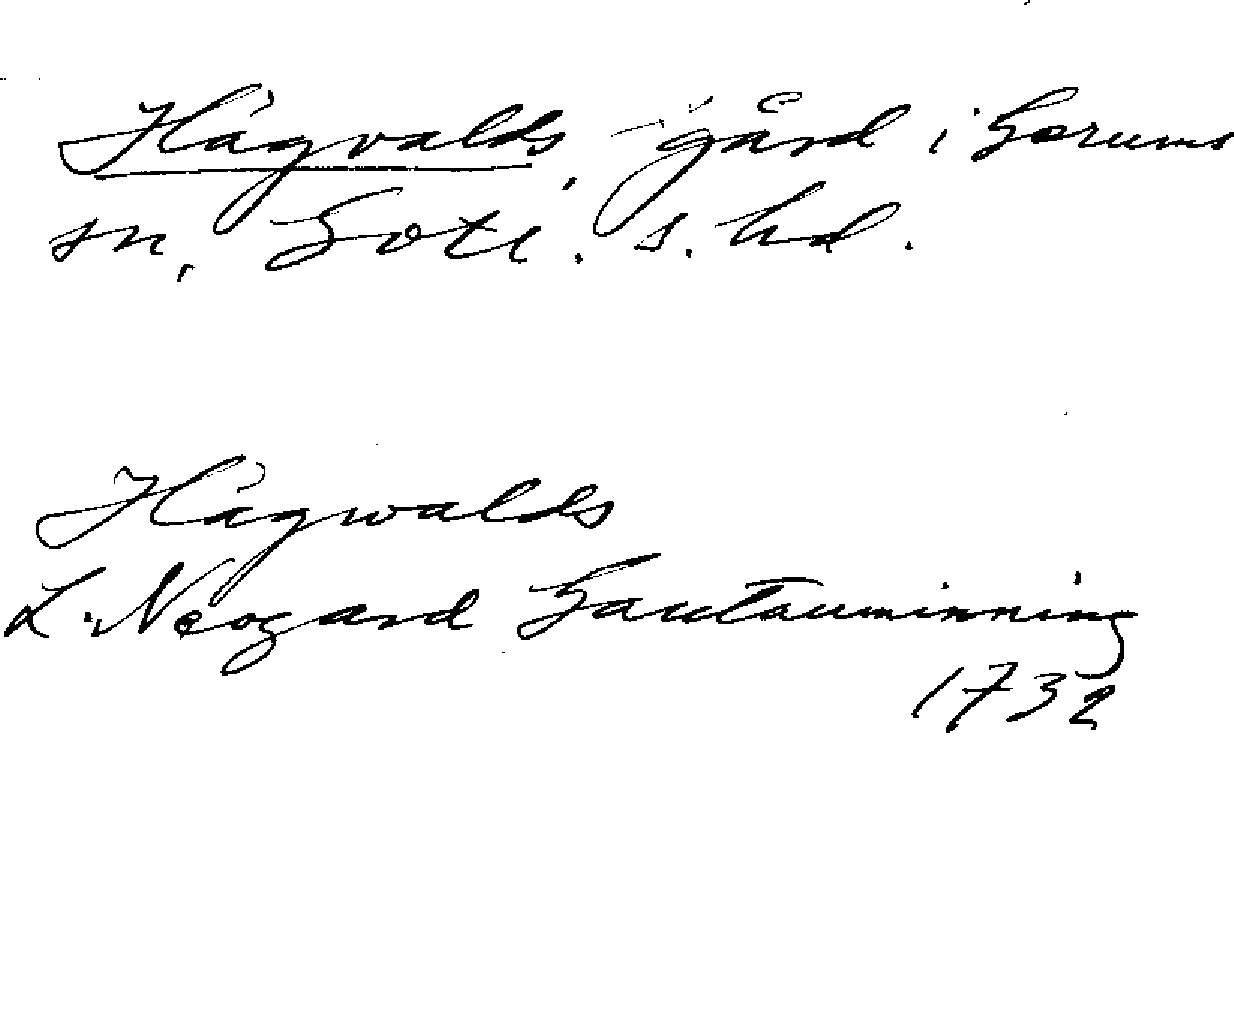 Hägvalds, gård i Gerums
sn, Gotl. s. hd.
Hägwalds
L. Neogard Gautauminning
1732